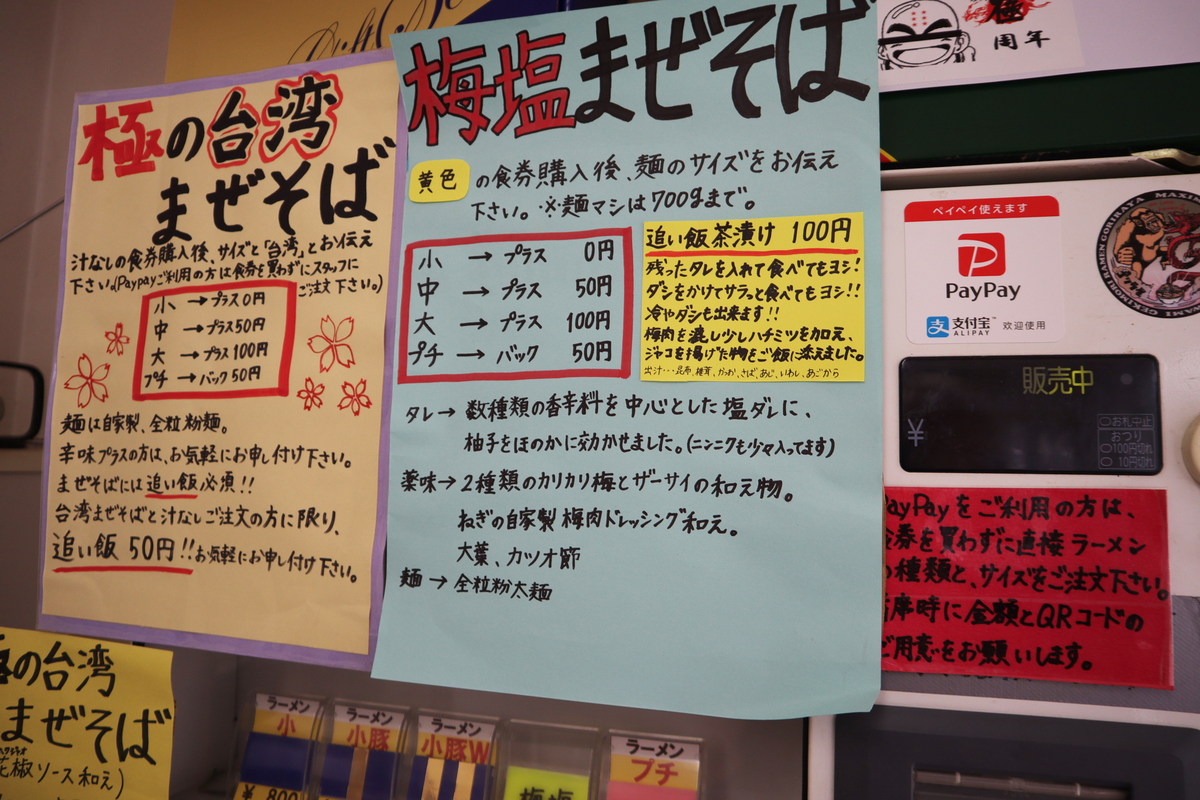 極の台湾
まぜそば
汁なしの食券購入後、サイズと「台湾」とお伝え
下さい。(Paypayご利用の方は食券を買わずにスタッフに
ご注文下さい。)
小→プラス0円
中→プラス50円
大→プラス100円
プチ→バック50円
麺は自家製、全粒粉麺。
辛味プラスの方は、お気軽にお申し付け下さい。
まぜそばには追い飯必須!!
台湾まぜそばと汁なしご注文の方に限り、
追い飯 50円!!お気軽にお申し付け下さい。
梅塩まぜそば
黄色の食券購入後、麺のサイズをお伝え
下さい。※麺マシは700gまで。
小→プラス 0円
中→プラス 50円
大→プラス 100円
プチ→バック 50円
追い飯茶漬け 100円
残ったタレを入れて食べてもヨシ!
ダシをかけてサラっと食べてもヨシ!!
冷やダシも出来ます!!
梅肉を漉し少しハチミツを加え、
ジャコを揚げた物をご飯に添えました。
出汁…昆布、椎茸、かつお、さば、あじ、いわし、あごから
タレ→数種類の香辛料を中心とした塩ダレに、
柚子をほのかに効かせました。(ニンニクも少々入ってます)
薬味→2種類のカリカリ梅とザーサイの和え物。
ねぎの自家製梅肉ドレッシング和え。
大葉、カツオ節
麺→全粒粉太麺
極
周年
ペイペイ使えます
PayPay
支付宝
ALIPAY
欢迎使用
販売中
¥
お札中止
おつり
100円切れ
10円切れ
PayPayをご利用の方は、
券を買わずに直接ラーメン
の種類と、サイズをご注文下さい。
席時に金額とQRコードの
ご用意をお願いします。
の台湾
まぜそば
花椒ソース和え)
ラーメン
小
¥800
ラーメン
小豚
ラーメン
小豚W
梅塩
ラーメン
プチ